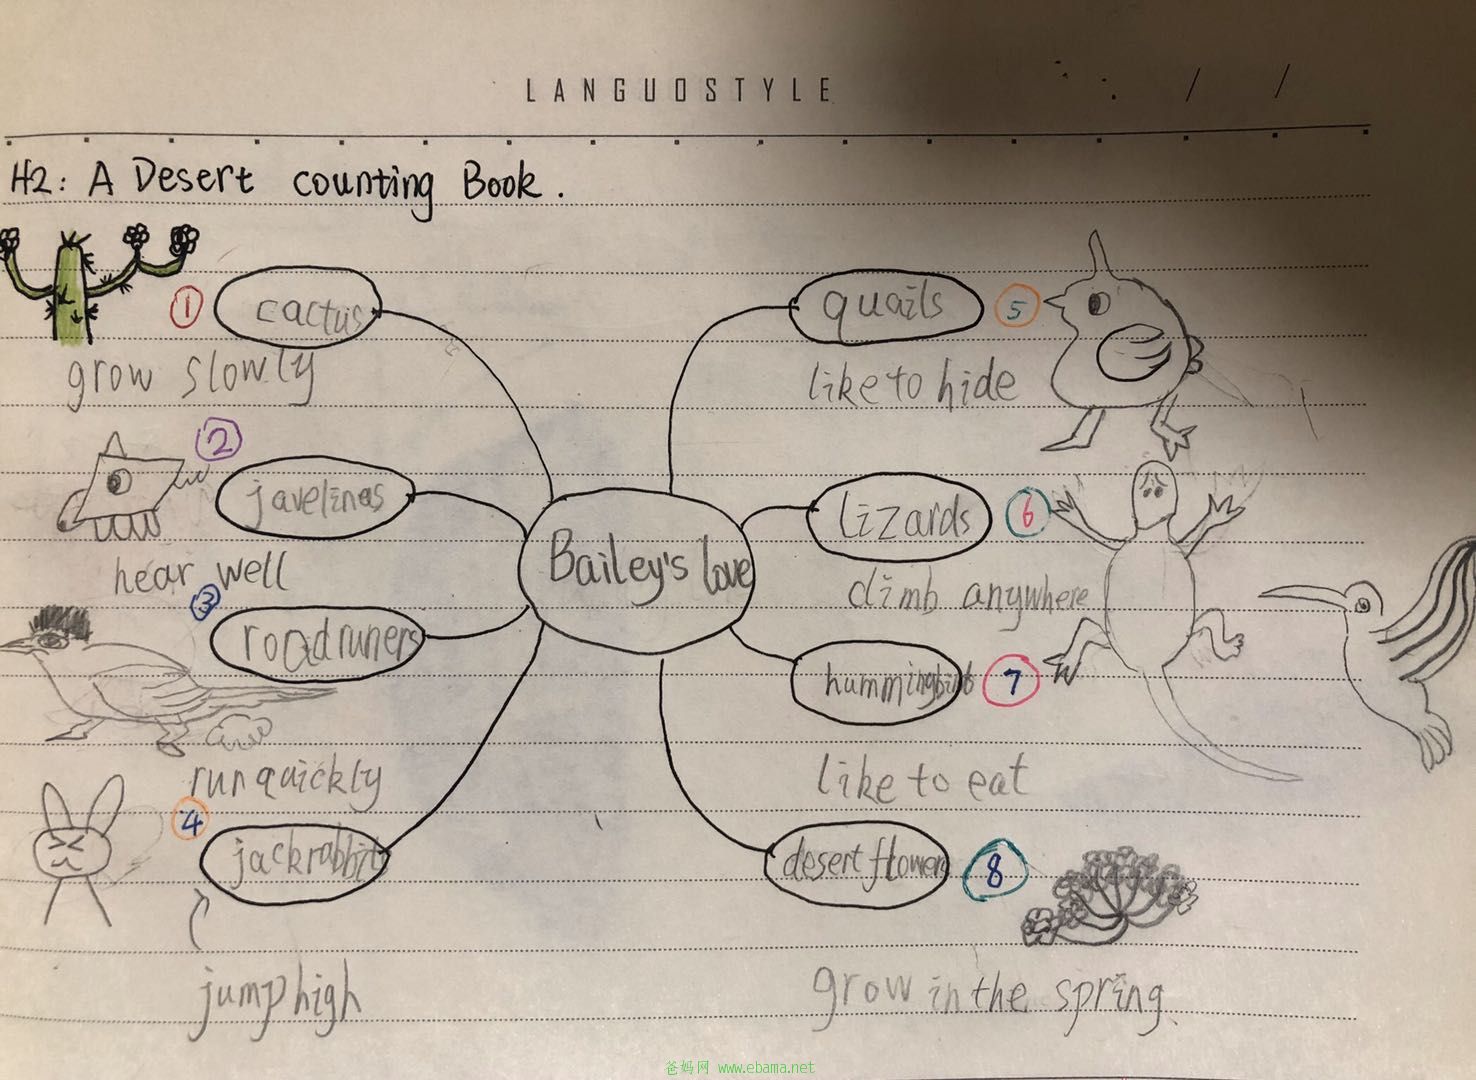 LANGUOSTYLE
/ /
H2: A Desert counting Book.
① cactus
grow slowly
② javelinas
hear well
③ roadruners
run quickly
④ jackrabbit
jump high
Bailey's love
quails ⑤
like to hide
lizards 6
climb anywhere
hummingbirds 7
like to eat
desert flowers 8
grow in the spring.
爸妈网 www.ebama.net